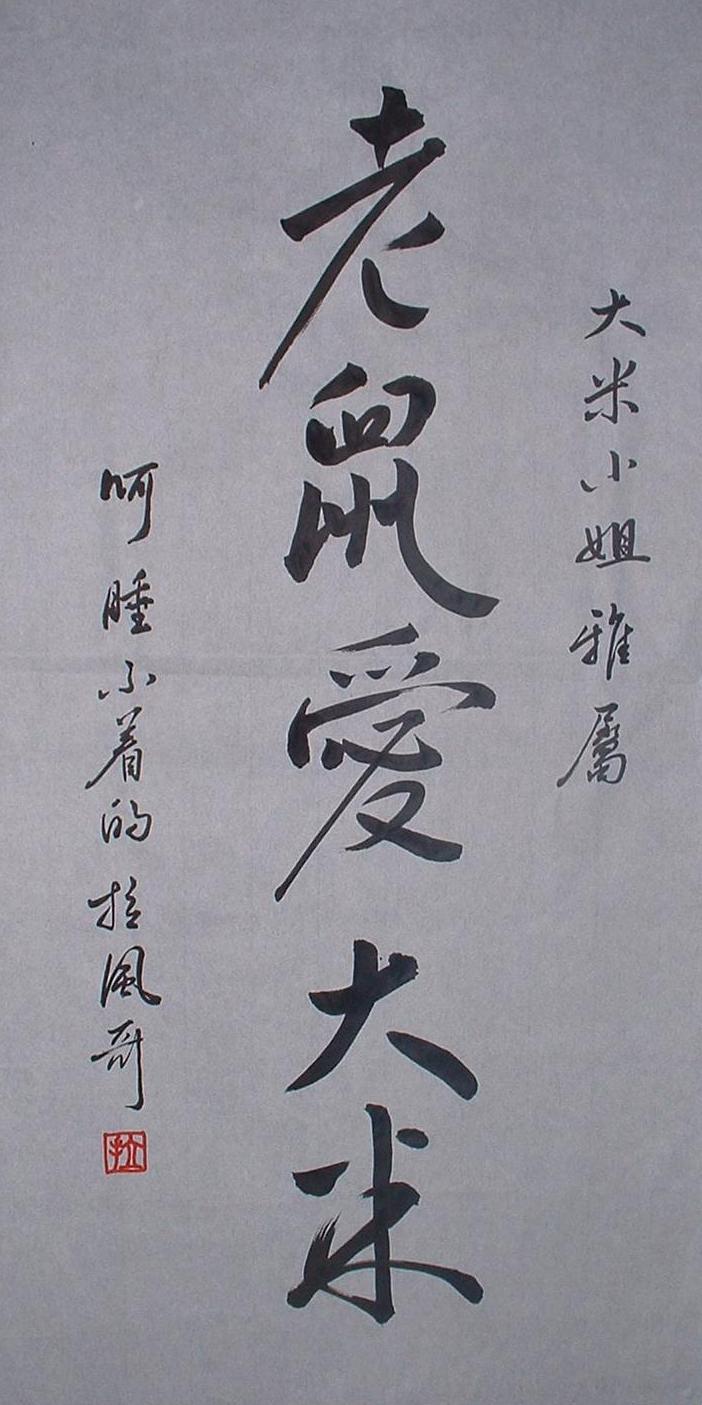 大米小姐雅屬
老鼠愛大米
呵睡不着的拉風哥
拉